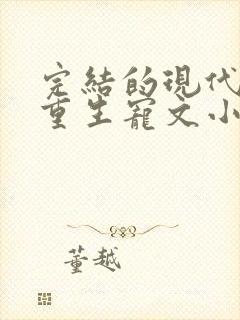 完結的現代
重生寵文小
董越